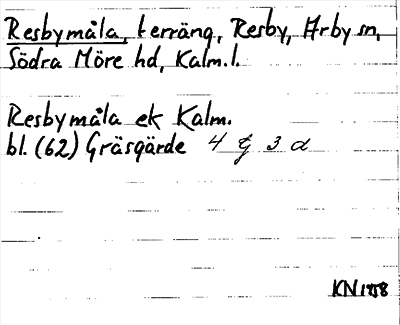 Resbymåla, terräng, Resby, Arby sn,
Södra Möre hd, Kalm. l.
Resbymåla ek Kalm.
bl. (62) Gräsgärde 4 G 3 a